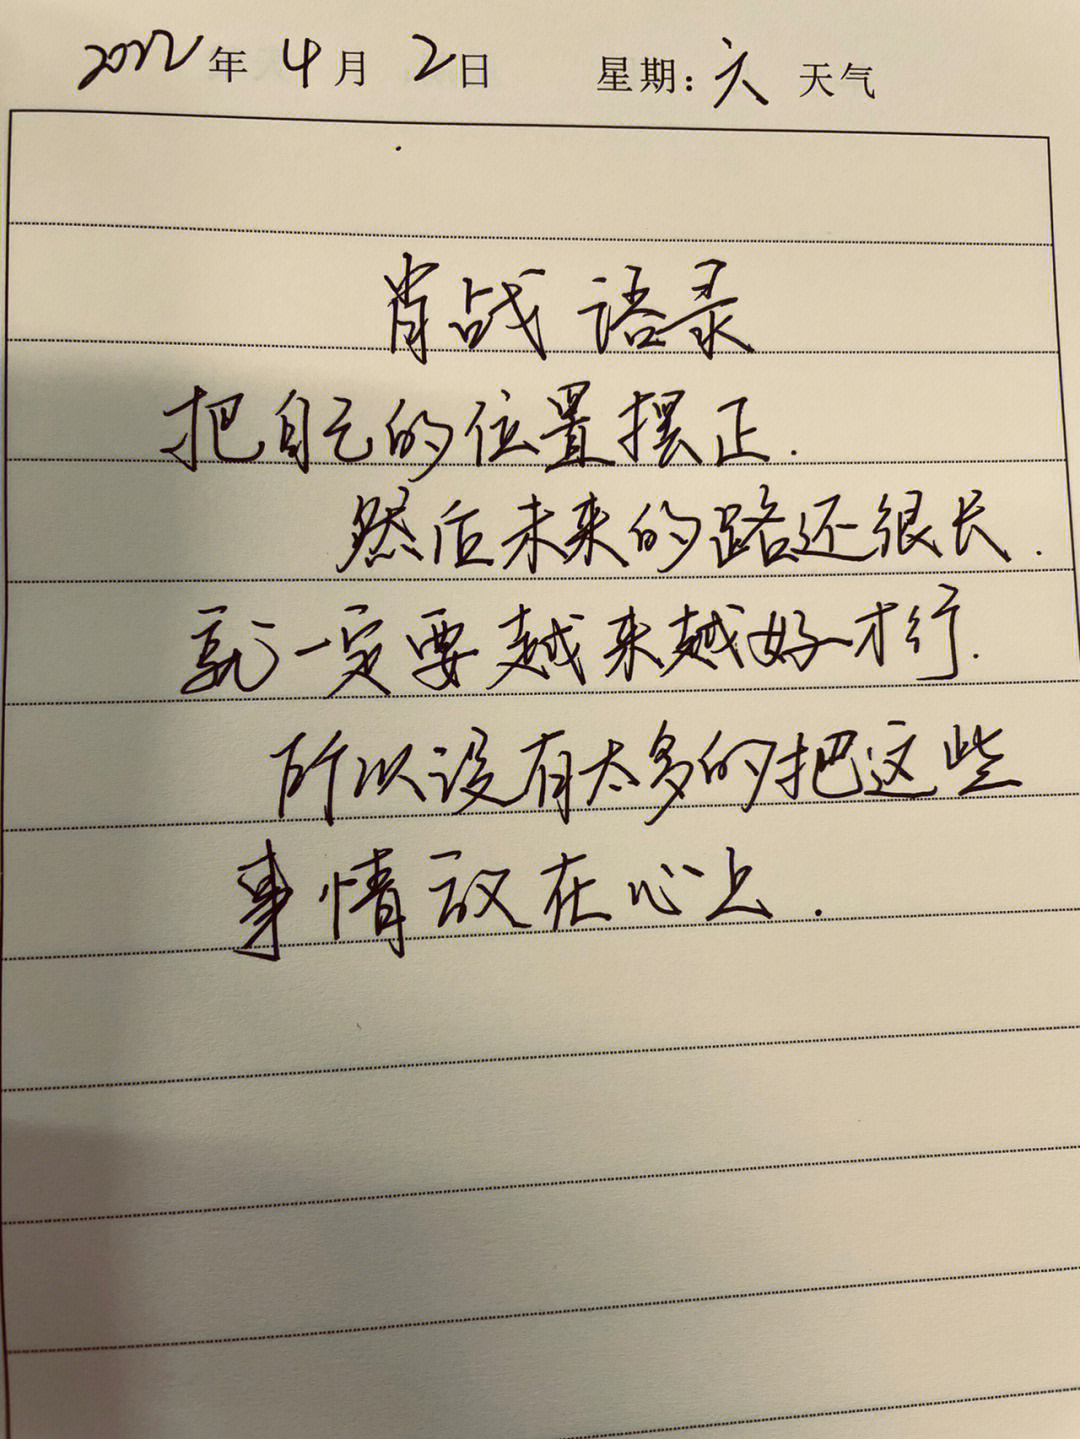 2022年4月2日 星期:六 天气
肖战 语录
把自己的位置摆正.
然后未来的路还很长.
就一定要越来越好才行.
所以没有太多的把这些
事情放在心上.